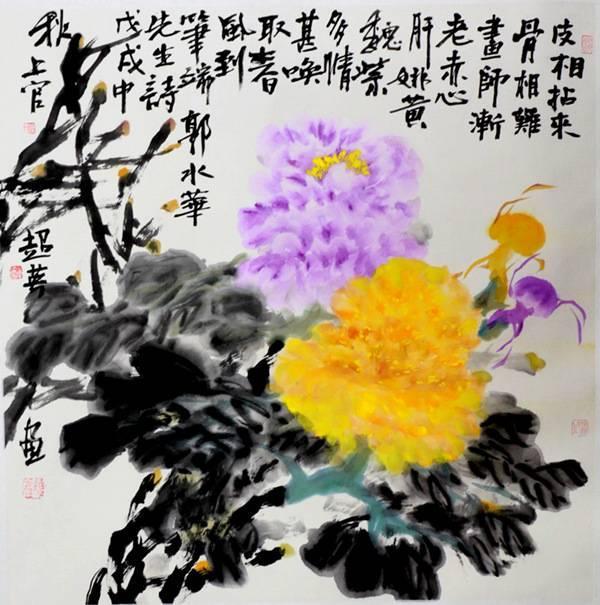 皮相拈来
骨相難
畫師漸
老赤心
肝姚黄
魏紫
多情
甚喚
取春
風到
筆端 郭水華
先生詩
戊戌中
秋上官
超英
畫